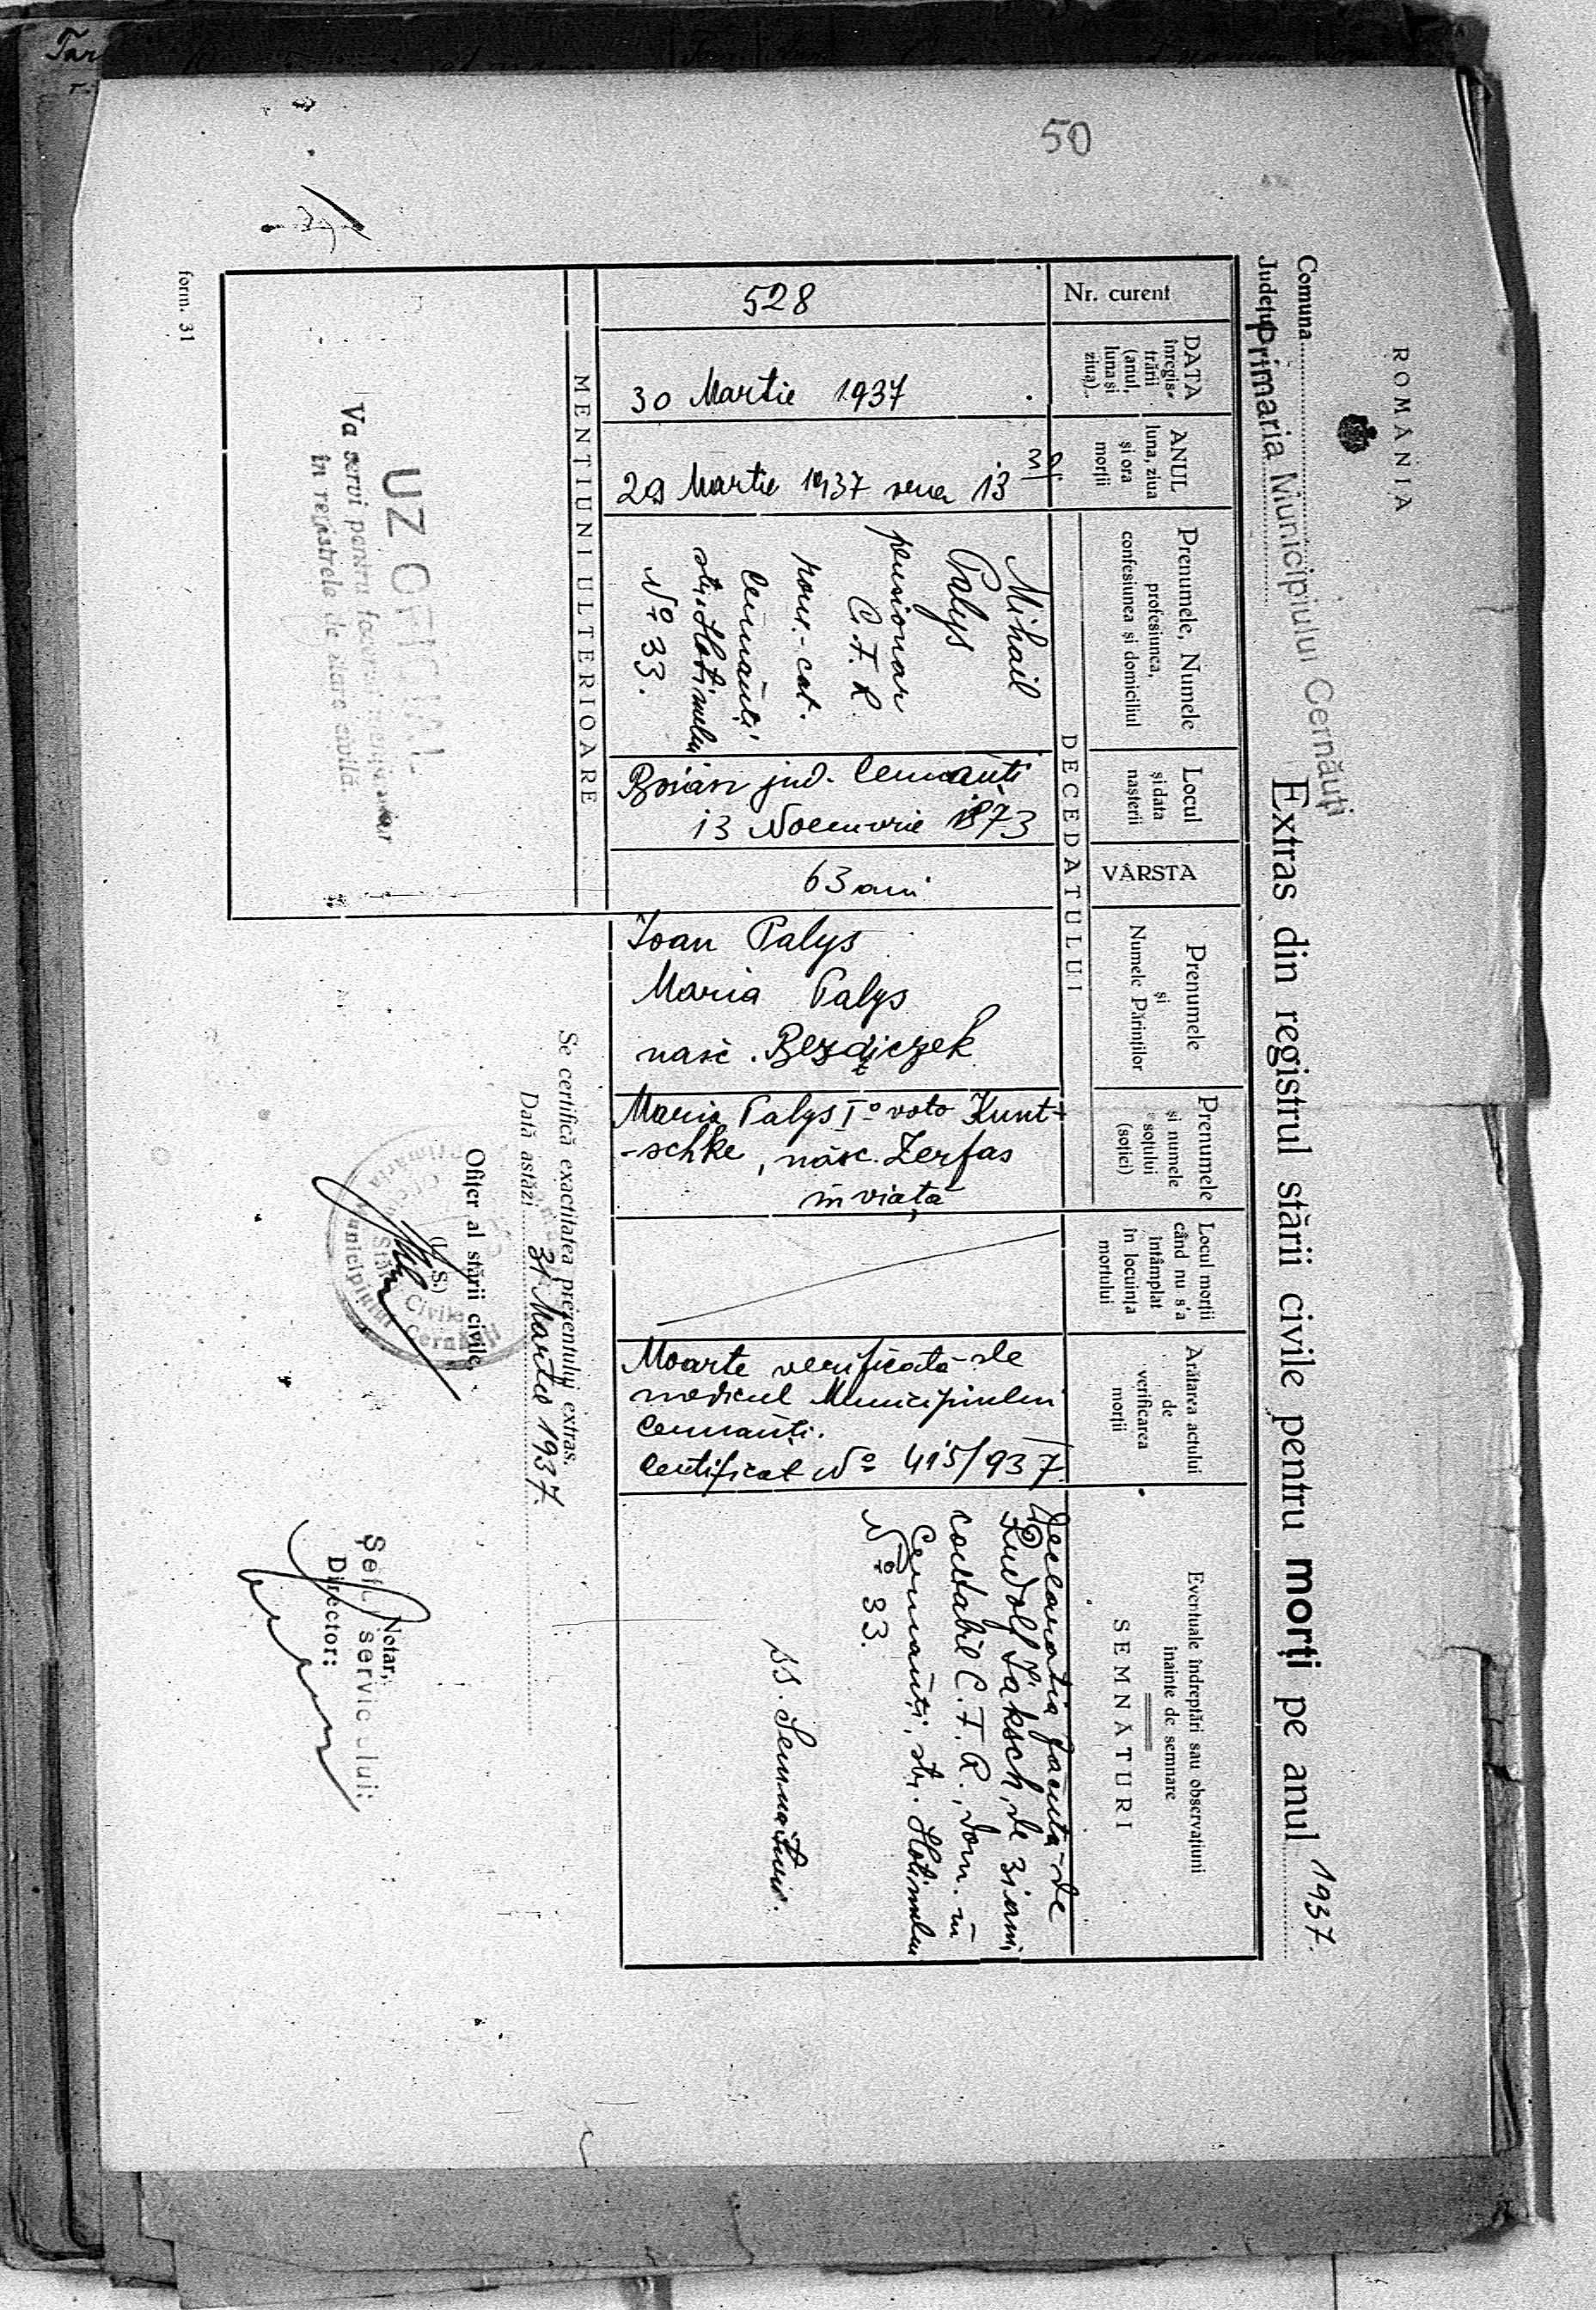 50
ROMÂNIA
Comuna
Județul
Primaria Municipiului Cernăuți
Extras din registrul stării civile pentru morți pe anul 1937.
Nr. curent
DATA
înregis-
trării
(anul,
luna și
ziua)
ANUL
luna, ziua
și ora
morții
DECEDATULUI
Prenumele, Numele
profesiunea,
confesiunea și domiciliul
Locul
și data
nașterii
VÂRSTA
Prenumele
și
Numele Părinților
Prenumele
și numele
soțului
(soției)
Locul morții
când nu s'a
întâmplat
în locuința
mortului
Arătarea actului
de
verificarea
morții
Eventuale îndreptări sau observațiuni
înainte de semnare
SEMNĂTURI
528
30 Martie 1937
29 Martie 1937 ora 13 30
Mihail
Palys
pensionar
C. F. R.
rom.-cat.
Cernăuți
str. Hotinului
No 33.
Boian jud. Cernăuți
13 Noemvrie 1873
63 ani
Ioan Palys
Maria Palys
nasc. Bezdiczek
Maria Palys I-o voto Kunt-
-schke, născ. Zerfas
în viață
Moarte verificată de
medicul Municipiului
Cernăuți.
Certificat No 415/937
Declarația făcută de
Rudolf Jaksch, de 31 ani,
contabil C. F. R., dom. în
Cernăuți, str. Hotinului
No 33.
ss. Semnături.
MENȚIUNI ULTERIOARE
UZ OFICIAL
Va servi pentru facerea mențiunilor
în registrele de stare civilă.
Se certifică exactitatea prezentului extras.
Dată astăzi 31 Martie 1937.
Ofițer al stării civile,
(L. S.)
Notar,
Șeful serviciului:
Director:
form. 31